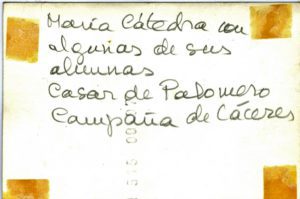 María Cátedra con
algunas de sus
alumnas
Casar de Palomero
Campaña de Cáceres